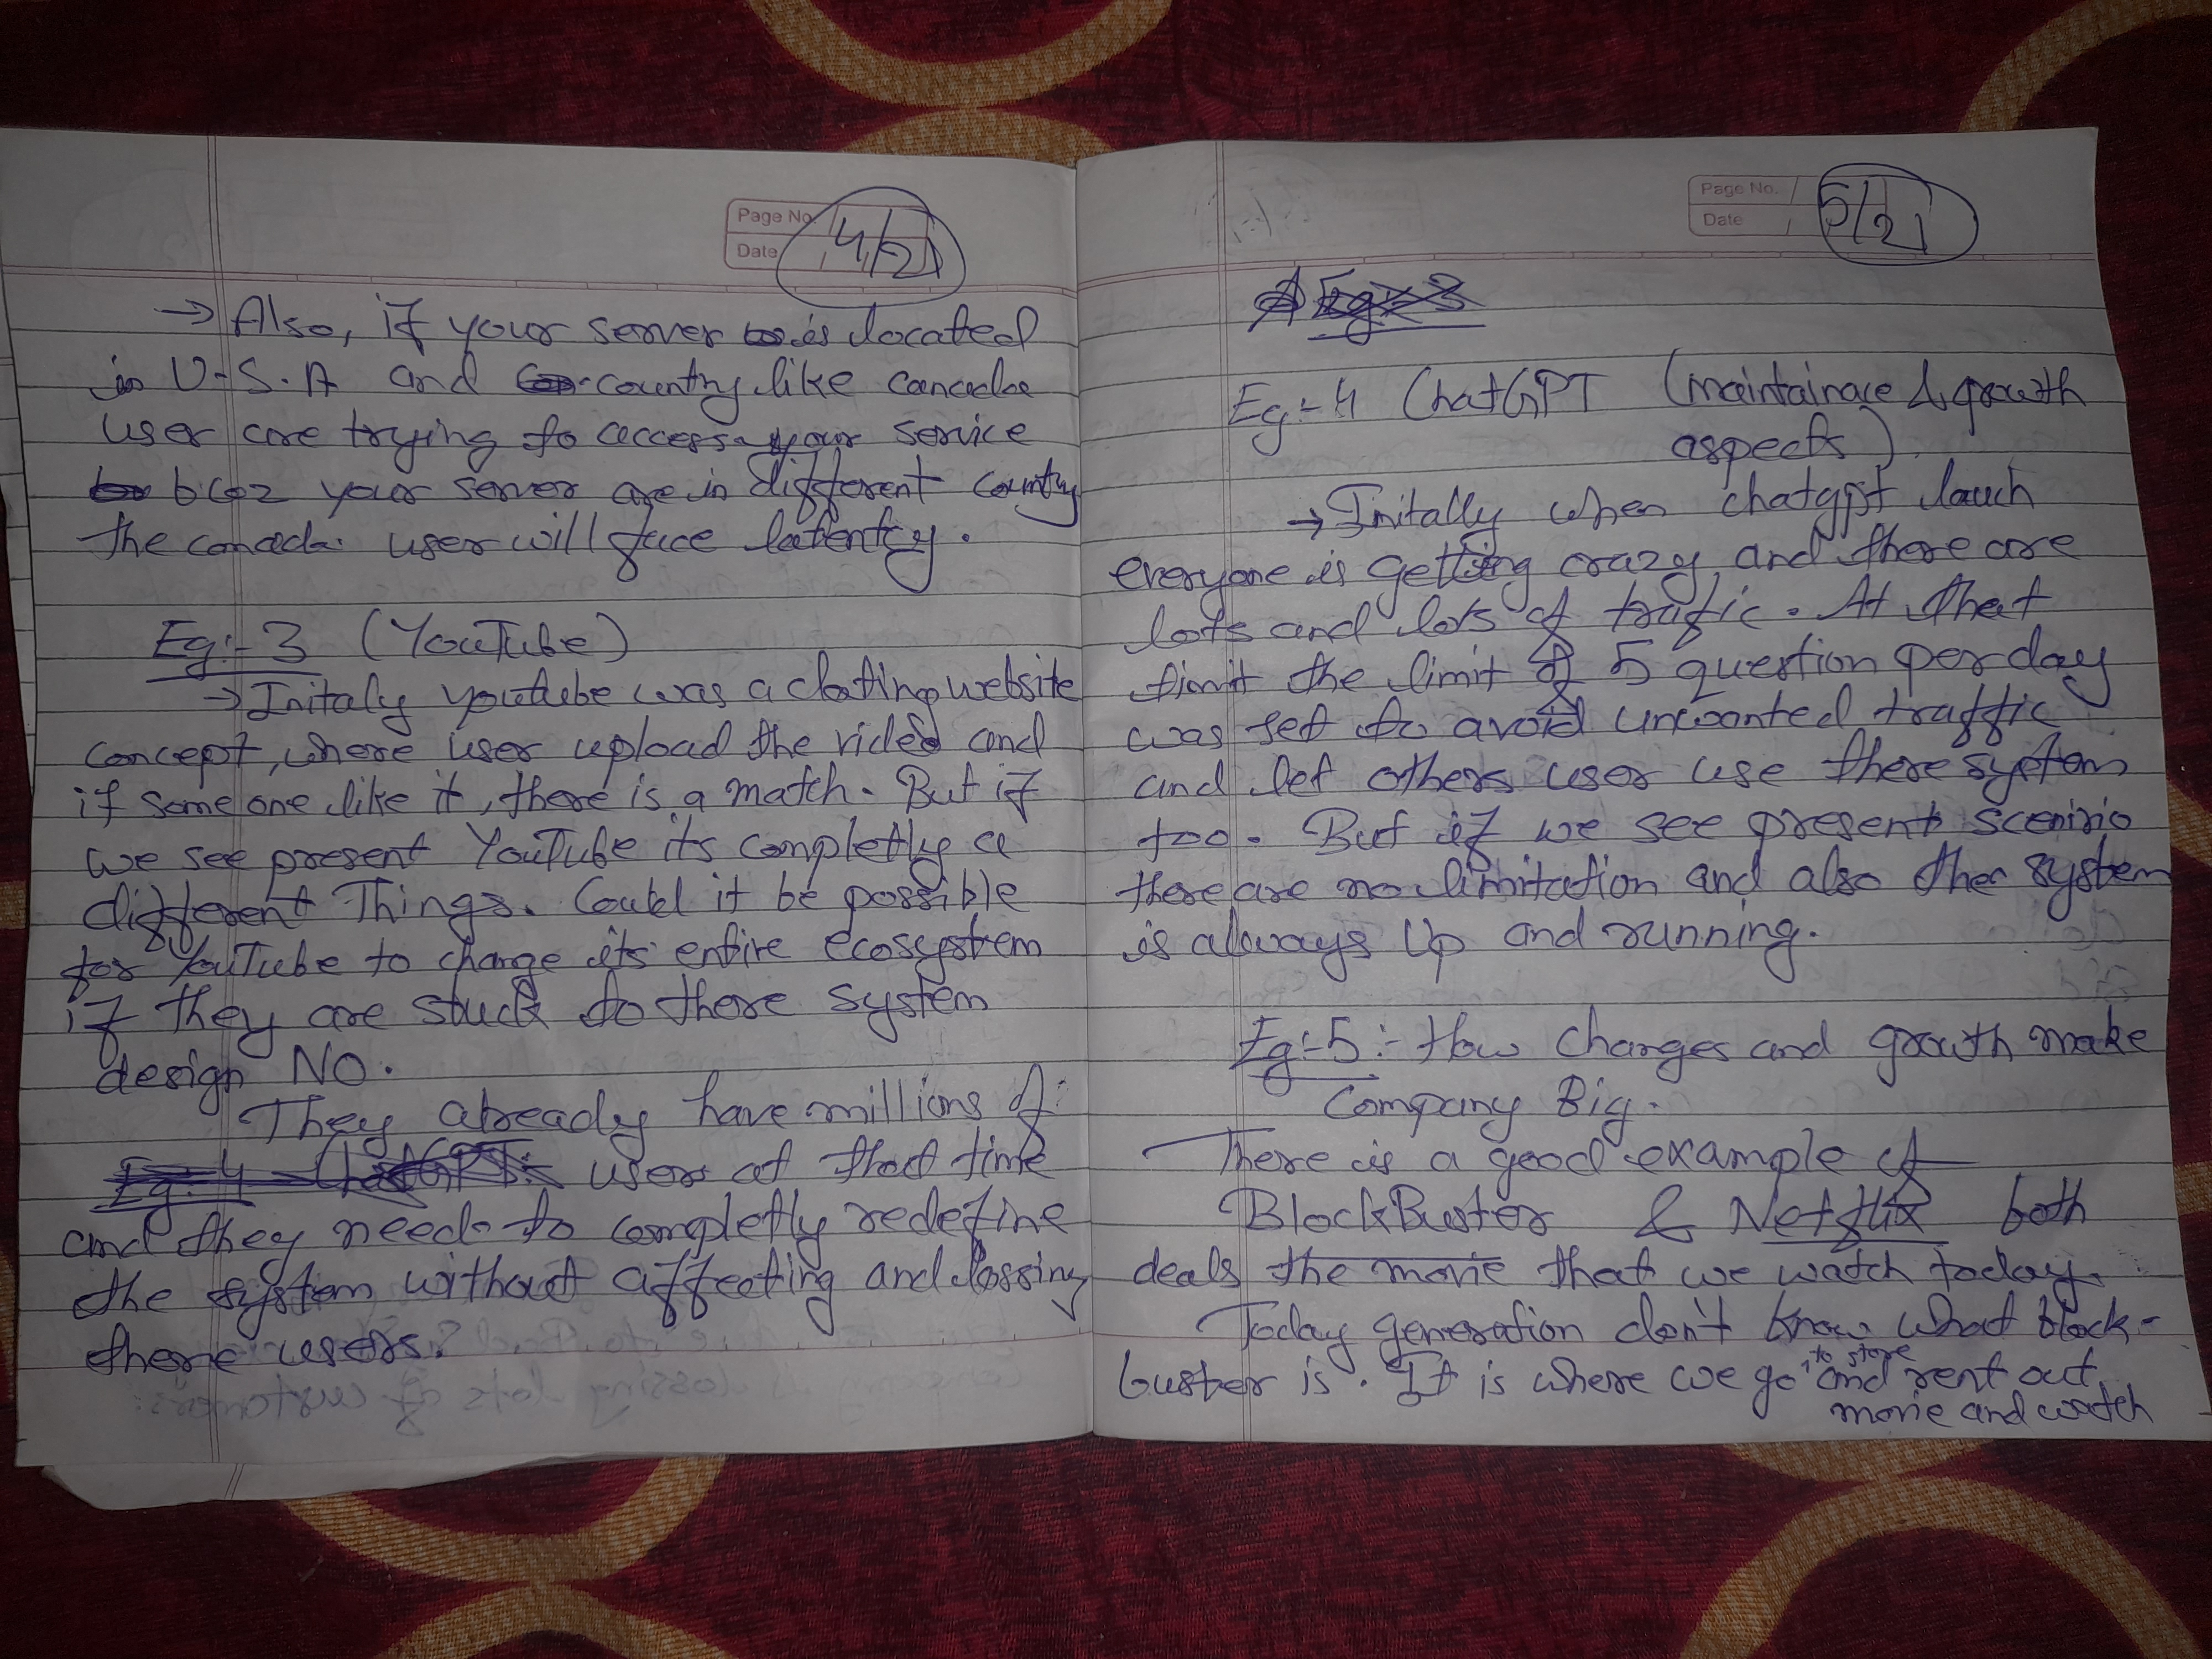 Page No.
Date
4/21
→ Also, if your server is located
in U.S.A and country like canada
user are trying to access your service
bcoz your server are in different country
the canada user will face latency.
Eg:-3 (YouTube)
→ Initaly youtube was a dating website
concept, where user upload the video and
if someone like it, there is a match. But if
we see present YouTube its completly a
different Things. Could it be possible
for YouTube to change its entire Ecosystem
if they are stuck to there system
design NO.
They already have millions of
user at that time
and they need to completly redefine
the system without affecting and lossing
there users.
Page No.
Date
5/21
Eg:-4 ChatGPT (maintainace & growth
aspects)
→ Initally when chatgpt launh
everyone is getting crazy and there are
lots and lots of trafic. At that
time the limit of 5 question per day
was set to avoid unwanted traffic
and let others user use there system
too. But if we see present scenirio
there are no limitation and also ther system
is always Up and running.
Eg:-5:- How changes and growth make
Company Big.
There is a good example of
BlockBuster & Netflix both
deals the movie that we watch today.
Today generation don't know what block-
buster is. It is where we go to store and rent out
movie and watch